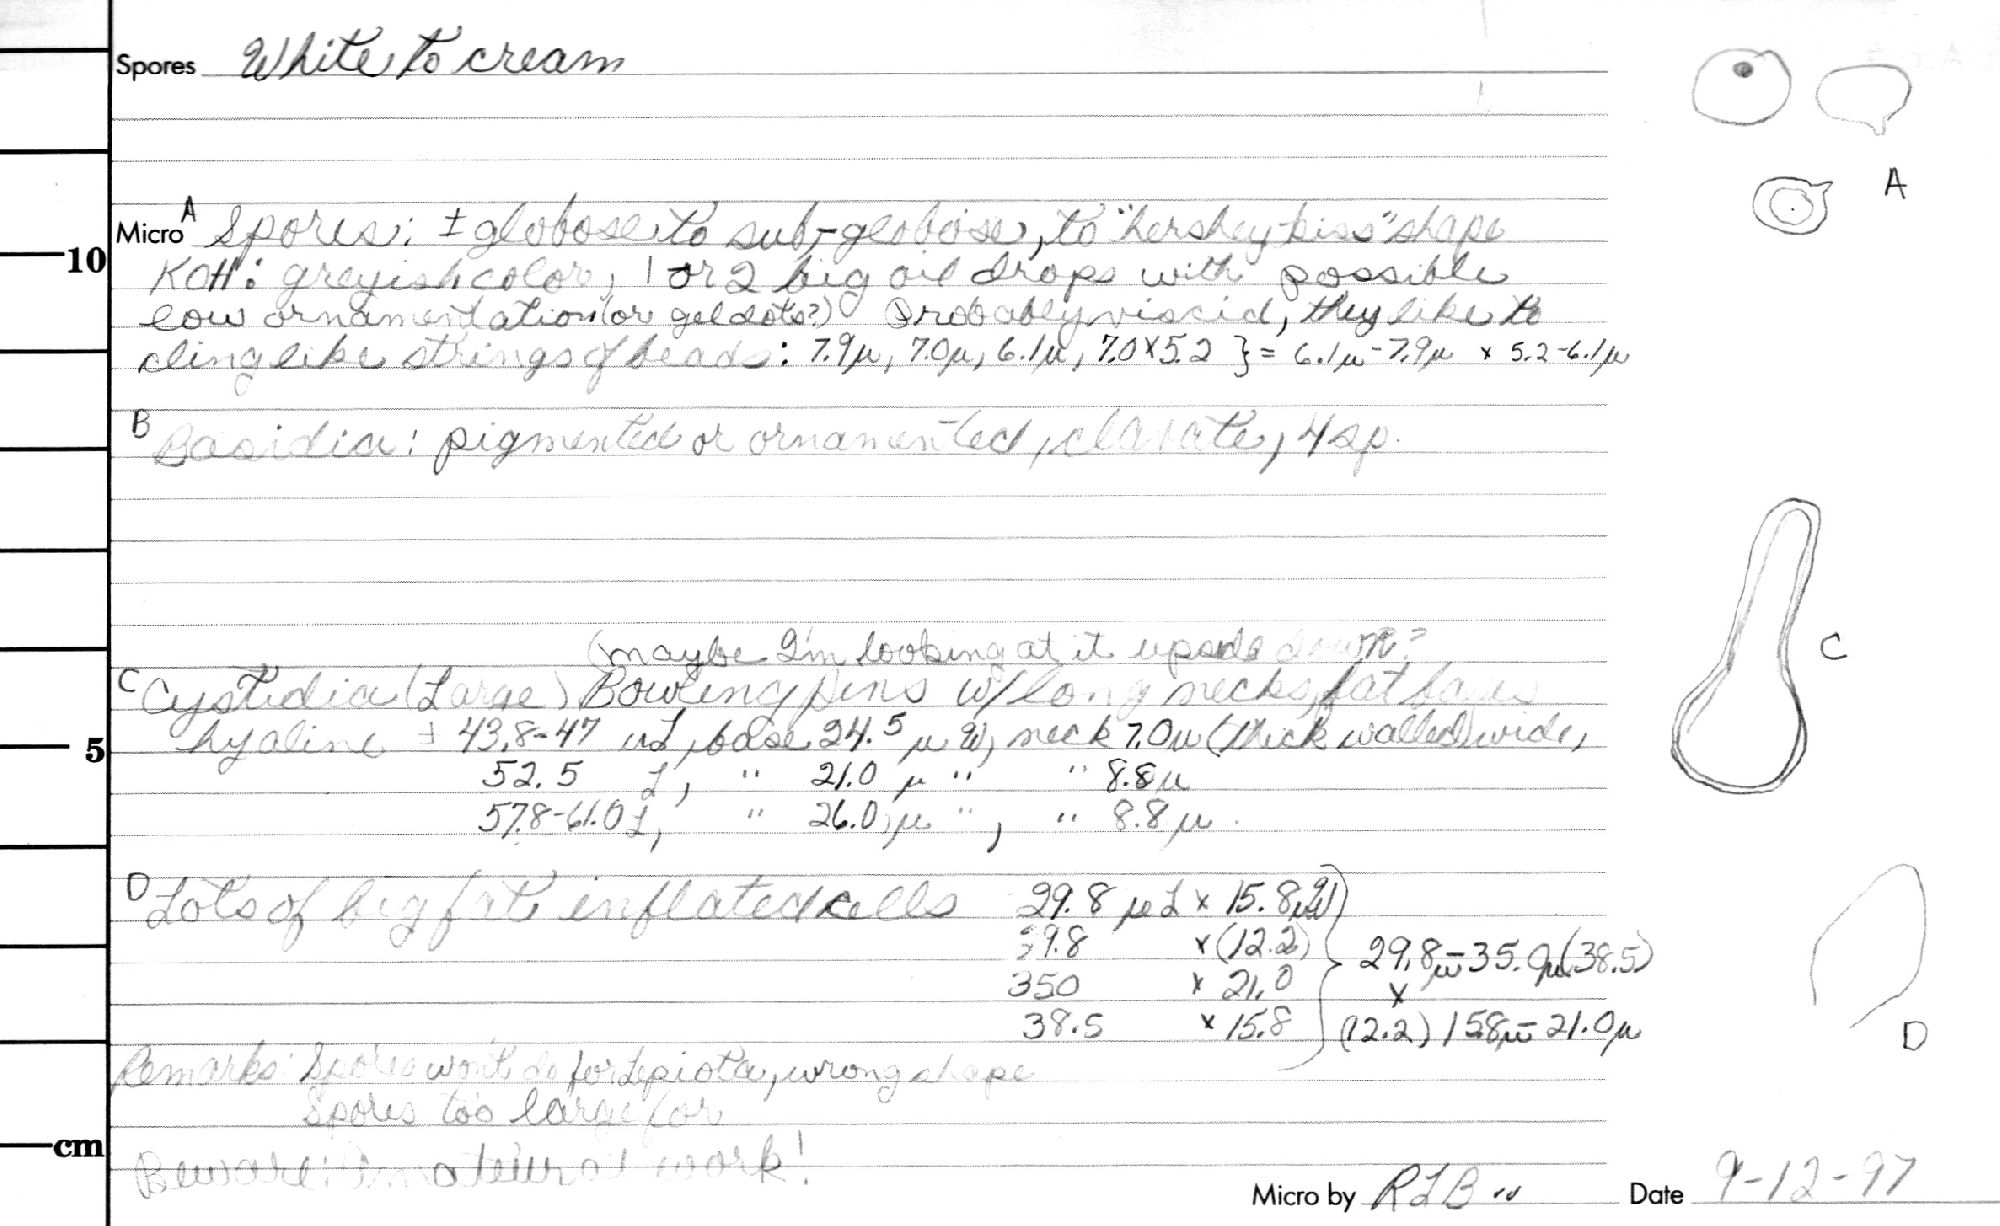 Spores White to cream
A
Micro Spores: ± globose to sub-globose, to "hershey-kiss" shape
A
10
KOH: greyish color, 1 or 2 big oil drops with possible
low ornamentation (or gel dots?) Probably viscid, they like to
cling like strings of beads: 7.9µ, 7.0µ, 6.1µ, 7.0x5.2 } = 6.1µ-7.9µ x 5.2-6.1µ
B
Basidia: pigmented or ornamented, clavate, 4 sp.
(maybe I'm looking at it upside down?
C
C Cystidia (Large) Bowling pins w/ long necks, fat
hyaline ± 43.8-47 µL, base 24.5 µ W, neck 7.0µ (thick walled) wide,
5
52.5 L, " 21.0 µ " " 8.8µ
57.8-61.0 L, " 26.0µ ", " 8.8µ.
D Lots of big fat inflated cells 29.8 µL x 15.8µW)
9.8 x (12.2)
29.8µ-35.0µ(38.5)
350 x 21.0
x
38.5 x 15.8
(12.2) 158µ-21.0µ
D
Remarks: Spores won't do for Lepiota, wrong shape
Spores too large for
cm
Beware: Amateur at work!
Micro by RLB Date 9-12-97